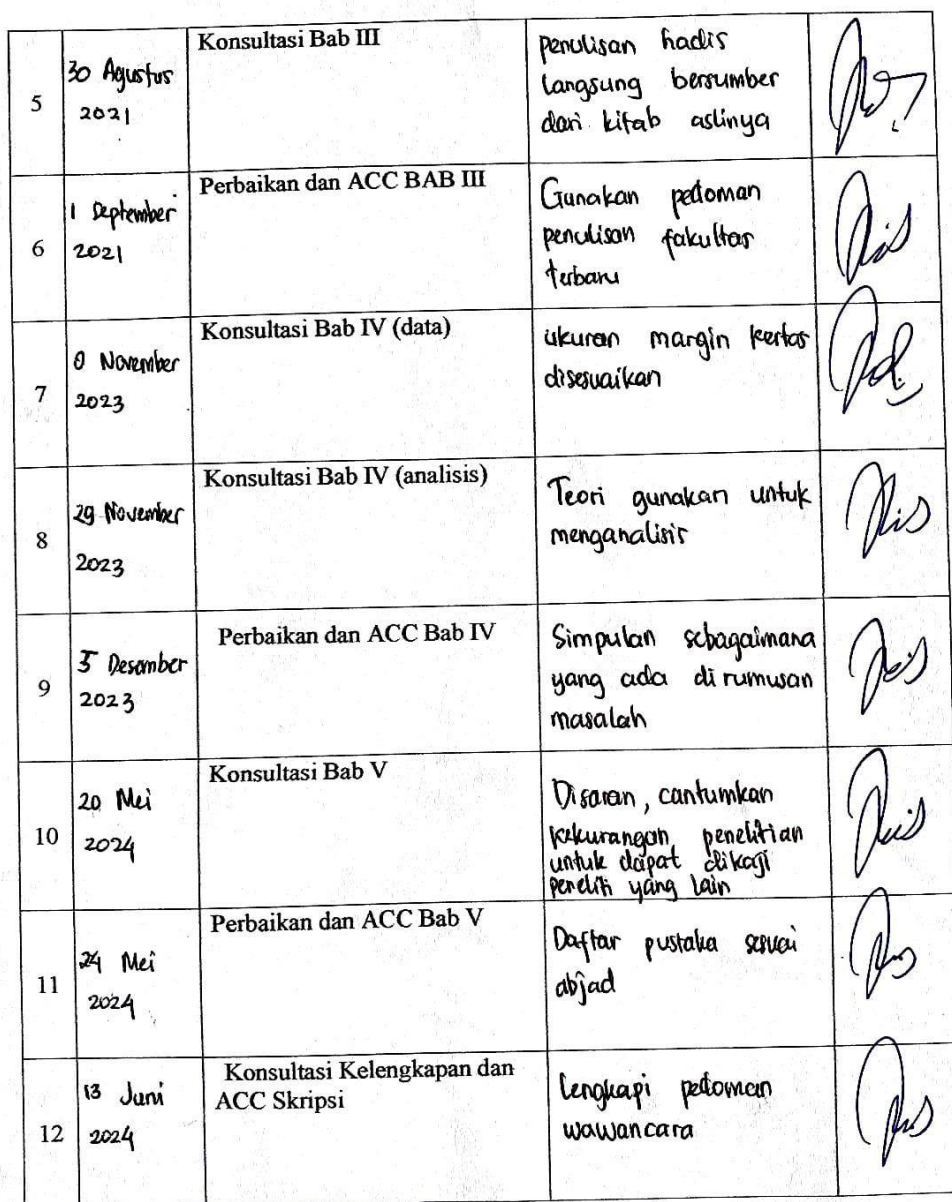 5
30 Agustus
2021
Konsultasi Bab III
penulisan hadis
langsung bersumber
dari kitab aslinya
6
1 September
2021
Perbaikan dan ACC BAB III
Gunakan pedoman
penulisan fakultas
terbaru
7
November
2023
Konsultasi Bab IV (data)
ukuran margin kertas
disesuaikan
8
29 November
2023
Konsultasi Bab IV (analisis)
Teori gunakan untuk
menganalisis
9
5 Desember
2023
Perbaikan dan ACC Bab IV
Simpulan sebagaimana
yang ada di rumusan
masalah
10
20 Mei
2024
Konsultasi Bab V
Disaran, cantumkan
kekurangan penelitian
untuk dapat dikaji
peneliti yang lain
11
24 Mei
2024
Perbaikan dan ACC Bab V
Daftar pustaka sesuai
abjad
12
13 Juni
2024
Konsultasi Kelengkapan dan
ACC Skripsi
Lengkapi pedoman
wawancara